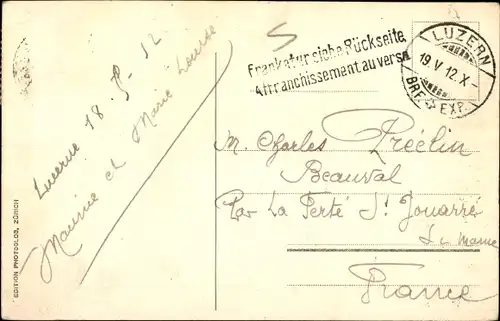 Lucerne 18-5-12
Maurice et Marie Louise
EDITION PHOTOGLOB, ZÜRICH
Frankatur siehe Rückseite
Affranchissement au verso
LUZERN
19 V 12. X-
BRF. EXP.
M. Charles Préclin
Beauval
Par La Ferté S! Jouarre
S. & Marne
France